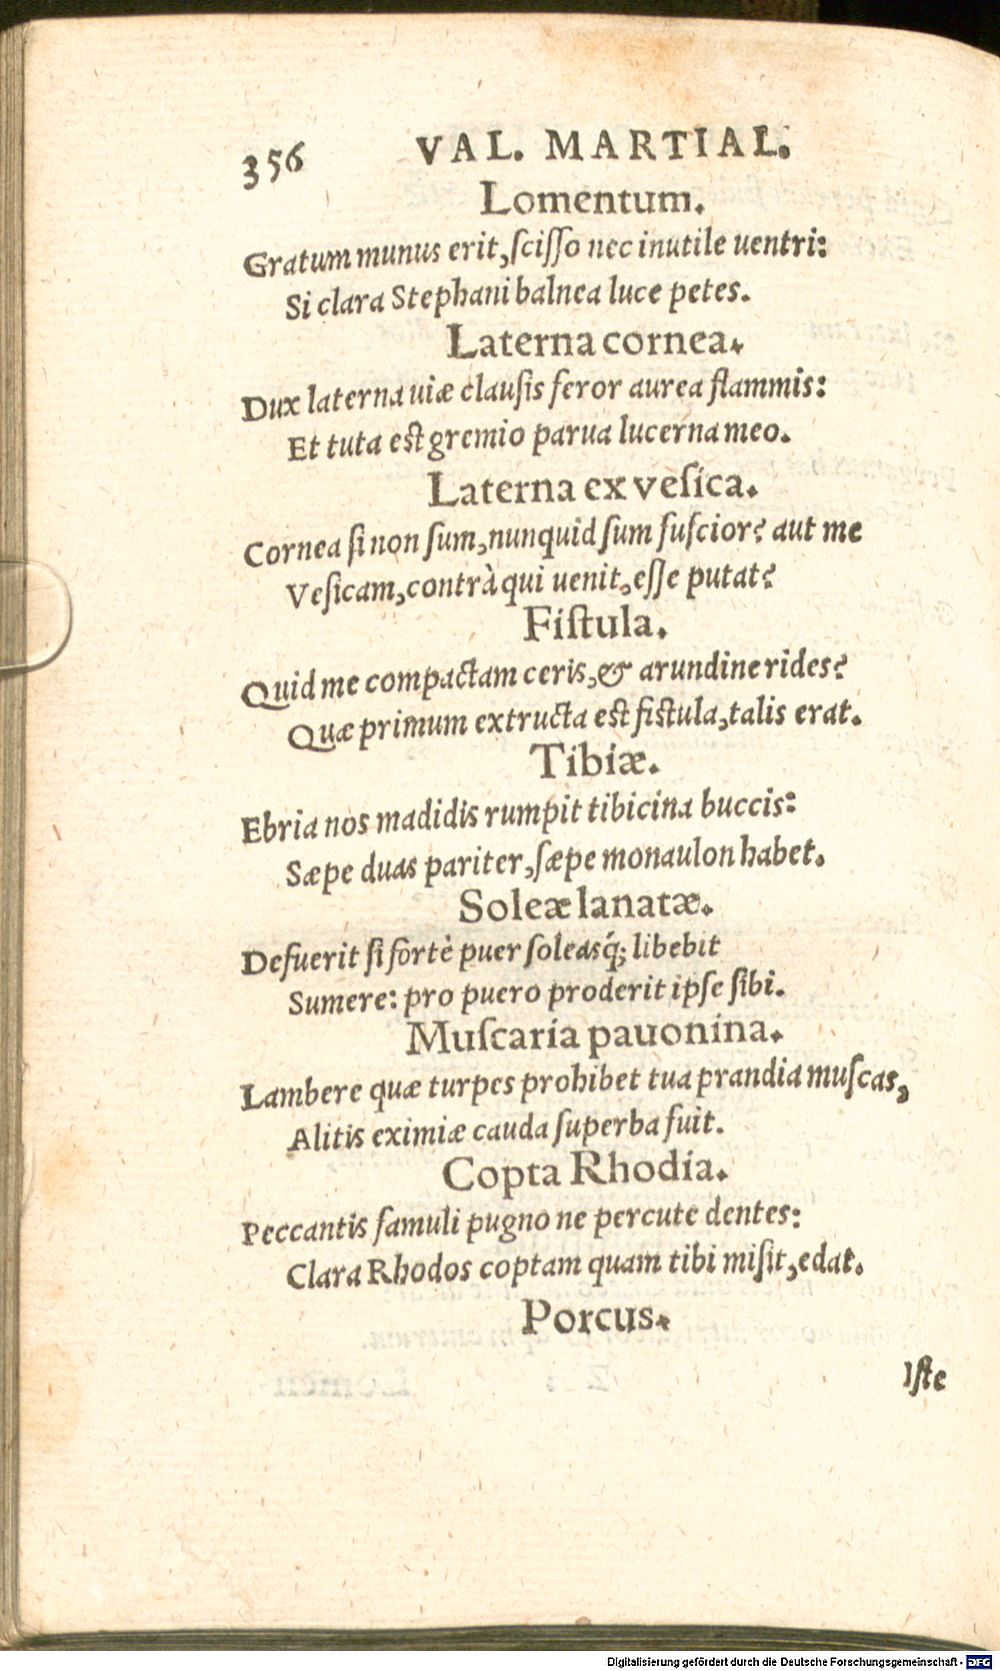 356 VAL. MARTIAL.
Lomentum.
Gratum munus erit, ſciſſo nec inutile uentri:
Si clara Stephani balnea luce petes.
Laterna cornea.
Dux laterna uiæ clauſis feror aurea flammis:
Et tuta eſt gremio parua lucerna meo.
Laterna ex veſica.
Cornea ſi non ſum, nunquid ſum fuſcior? aut me
Veſicam, contrà qui uenit, eſſe putat?
Fiſtula.
Quid me compactam ceris, & arundine rides?
Quæ primum extructa eſt fiſtula, talis erat.
Tibiæ.
Ebria nos madidis rumpit tibicina buccis:
Sæpe duas pariter, ſæpe monaulon habet.
Soleæ lanatæ.
Defuerit ſi fortè puer ſoleasq́; libebit
Sumere: pro puero proderit ipſe ſibi.
Muſcaria pauonina.
Lambere quæ turpes prohibet tua prandia muſcas,
Alitis eximiæ cauda ſuperba fuit.
Copta Rhodia.
Peccantis famuli pugno ne percute dentes:
Clara Rhodos coptam quam tibi miſit, edat.
Porcus.
Iſte
Digitalisierung gefördert durch die Deutsche Forschungsgemeinschaft - DFG